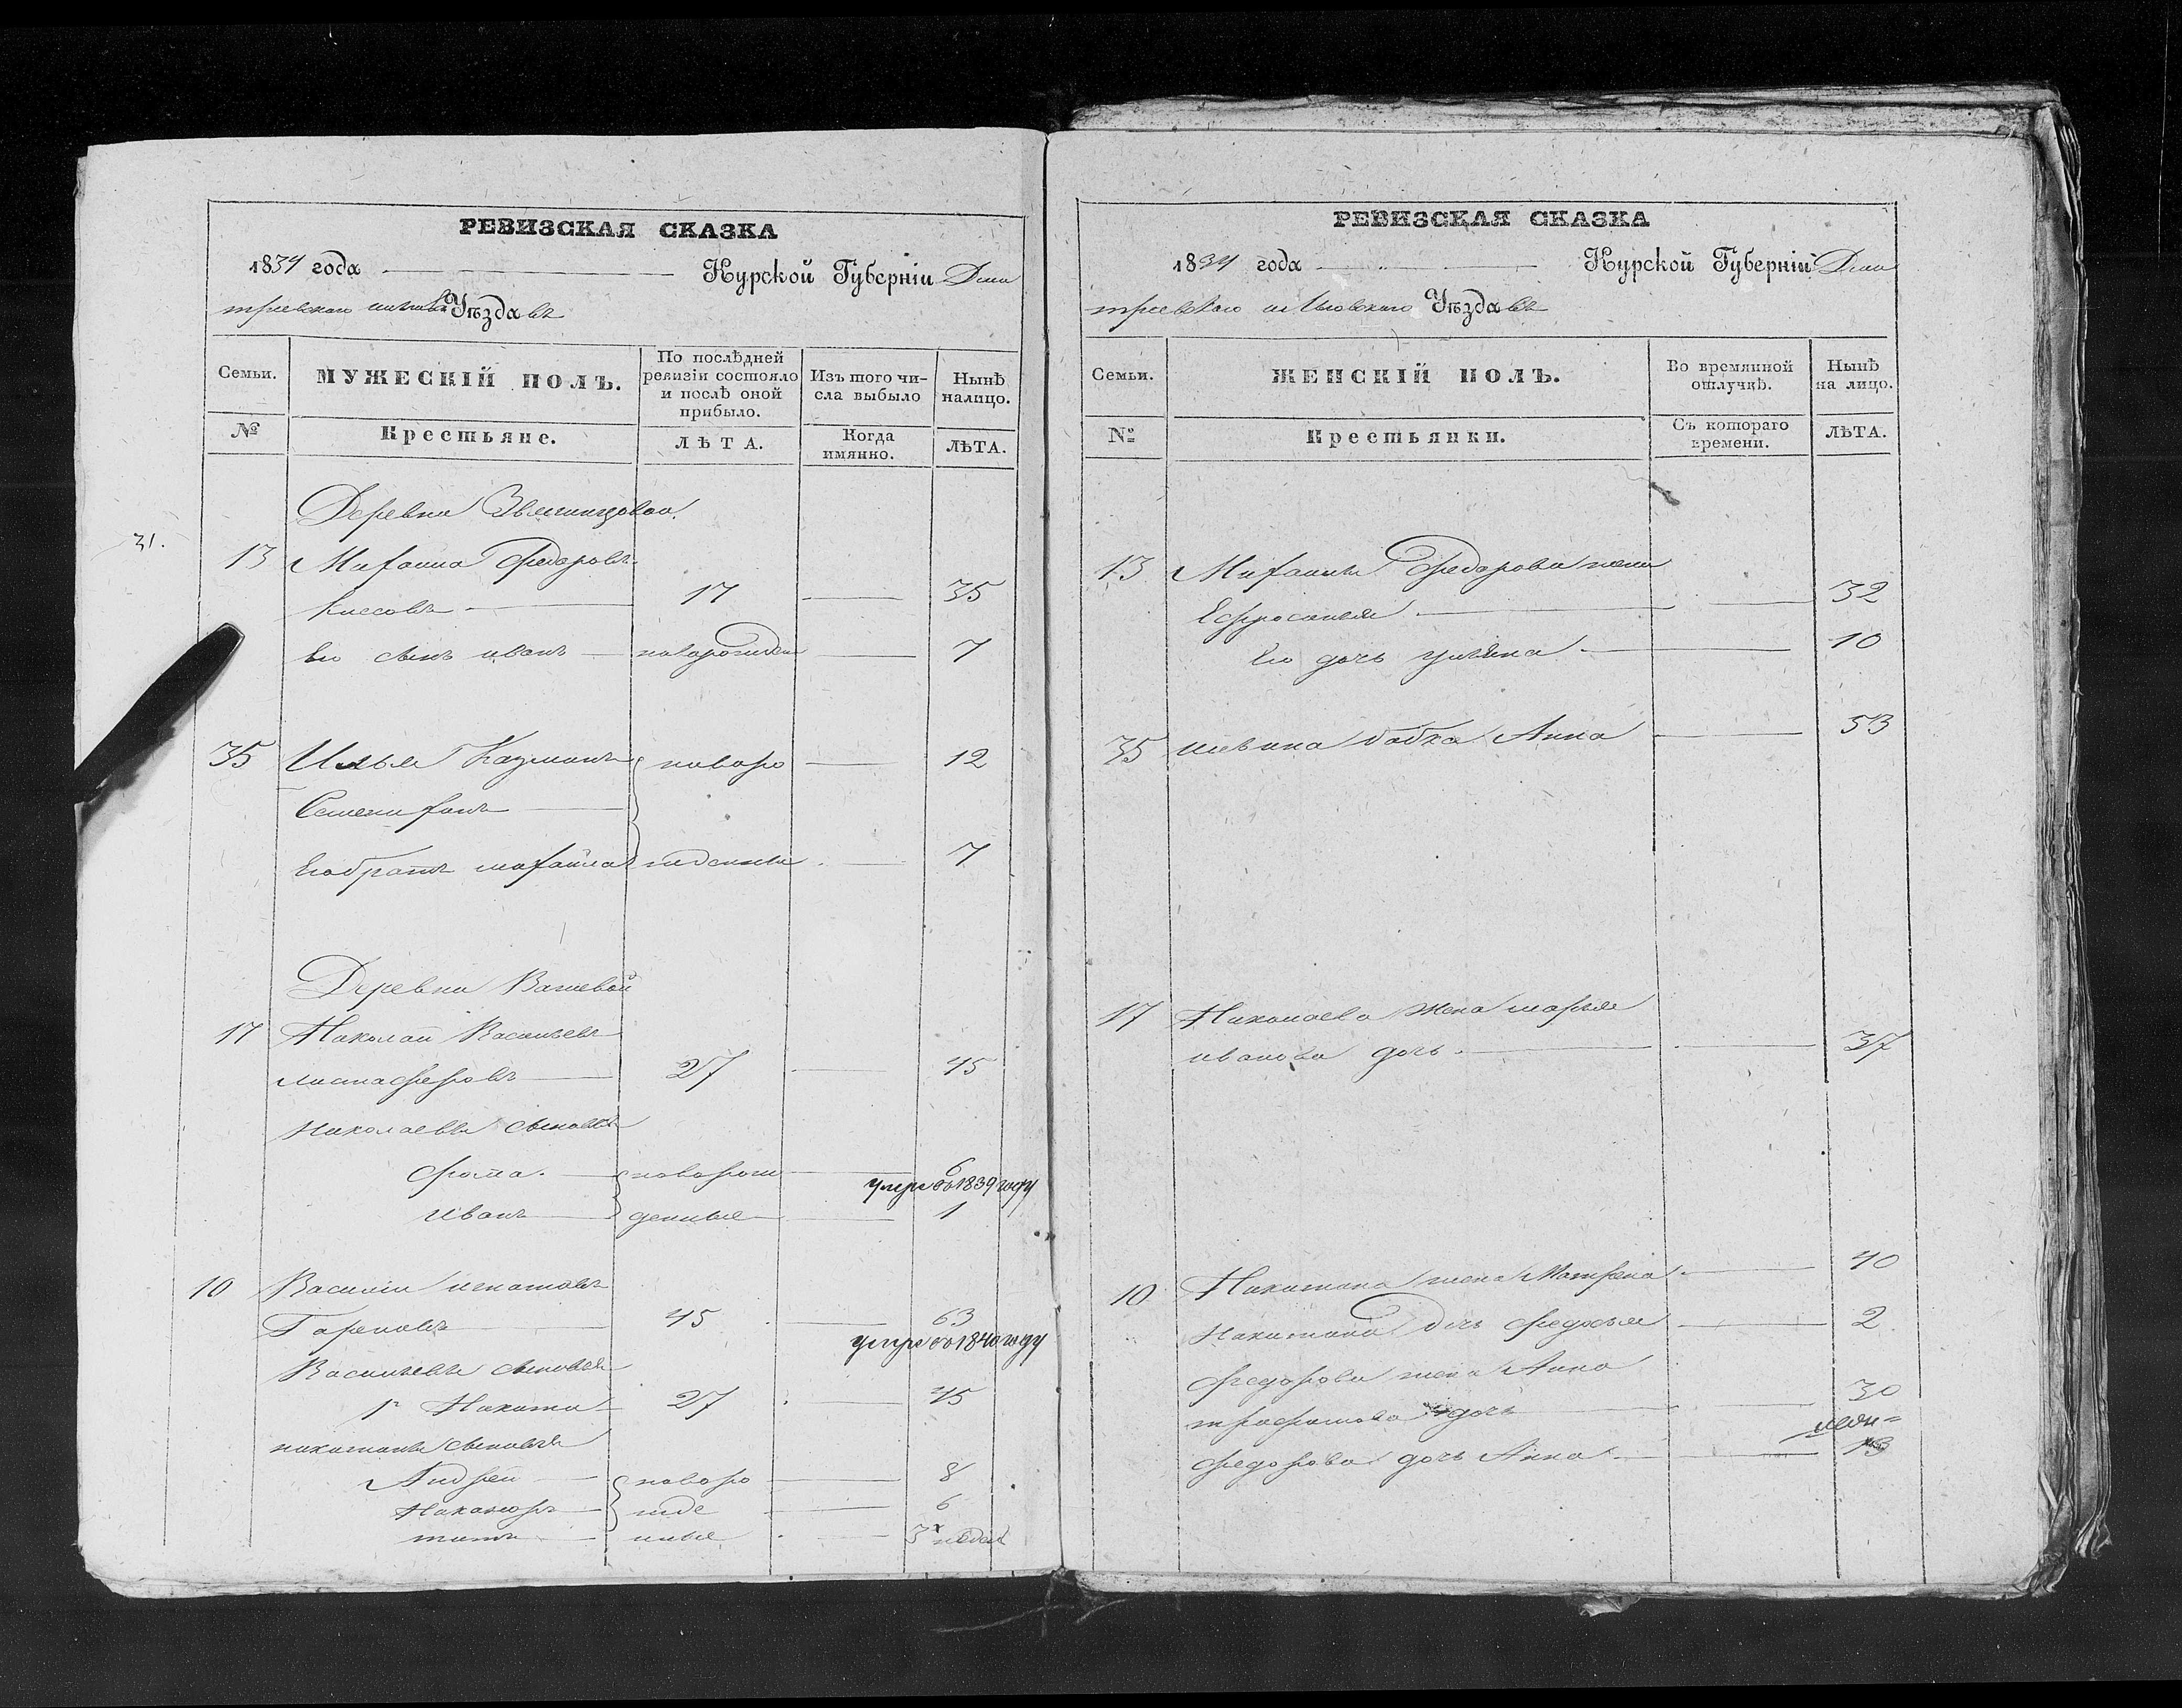 РЕВИЗСКАЯ СКАЗКА
1834 года Курской Губерніи Дми
тріевского на Уѣзда въ
Семьи.
МУЖЕСКІЙ ПОЛЪ.
По послѣдней ревизіи состояло и послѣ оной прибыло.
Изъ того числа выбыло
Нынѣ налицо.
№
Крестьяне.
ЛѢТА.
Когда имянно.
ЛѢТА.
Деревни
31.
13 Михаила Федоровъ
17 35
Его сынъ иванъ новорожден 7
35 Илья Казминъ новоро 12
Его братъ михайла жденные 7
Деревни
17 Николай Васильевъ
27 45
Николаевы сыновья
фома новорож 6
умре въ 1839 году
Иванъ денные 1
10 Василии игнатовъ
45 63
умре въ 1840 году
Васильевы сыновья
1й Никита 27 45
никитины сыновья
Андрей новоро 8
Никаноръ жде 6
титъ нные 3х недель
РЕВИЗСКАЯ СКАЗКА
1834 года Курской Губерніи Дми
тріевского Уѣзда въ
Семьи.
ЖЕНСКІЙ ПОЛЪ.
Во времянной отлучкѣ.
Нынѣ на лицо.
№
Крестьянки.
Съ котораго времени.
ЛѢТА.
13 Михаилы Федорова жена
Ефросинья 32
Его дочь ульяна 10
35 ильина бабка Анна 53
17 Николаева жена марья
иванова дочь 37
10 Никитина жена Матрена 40
Никитина дочь федосья 2
федорова жена Анна
трофимова дочь 30
федорова дочь Анна